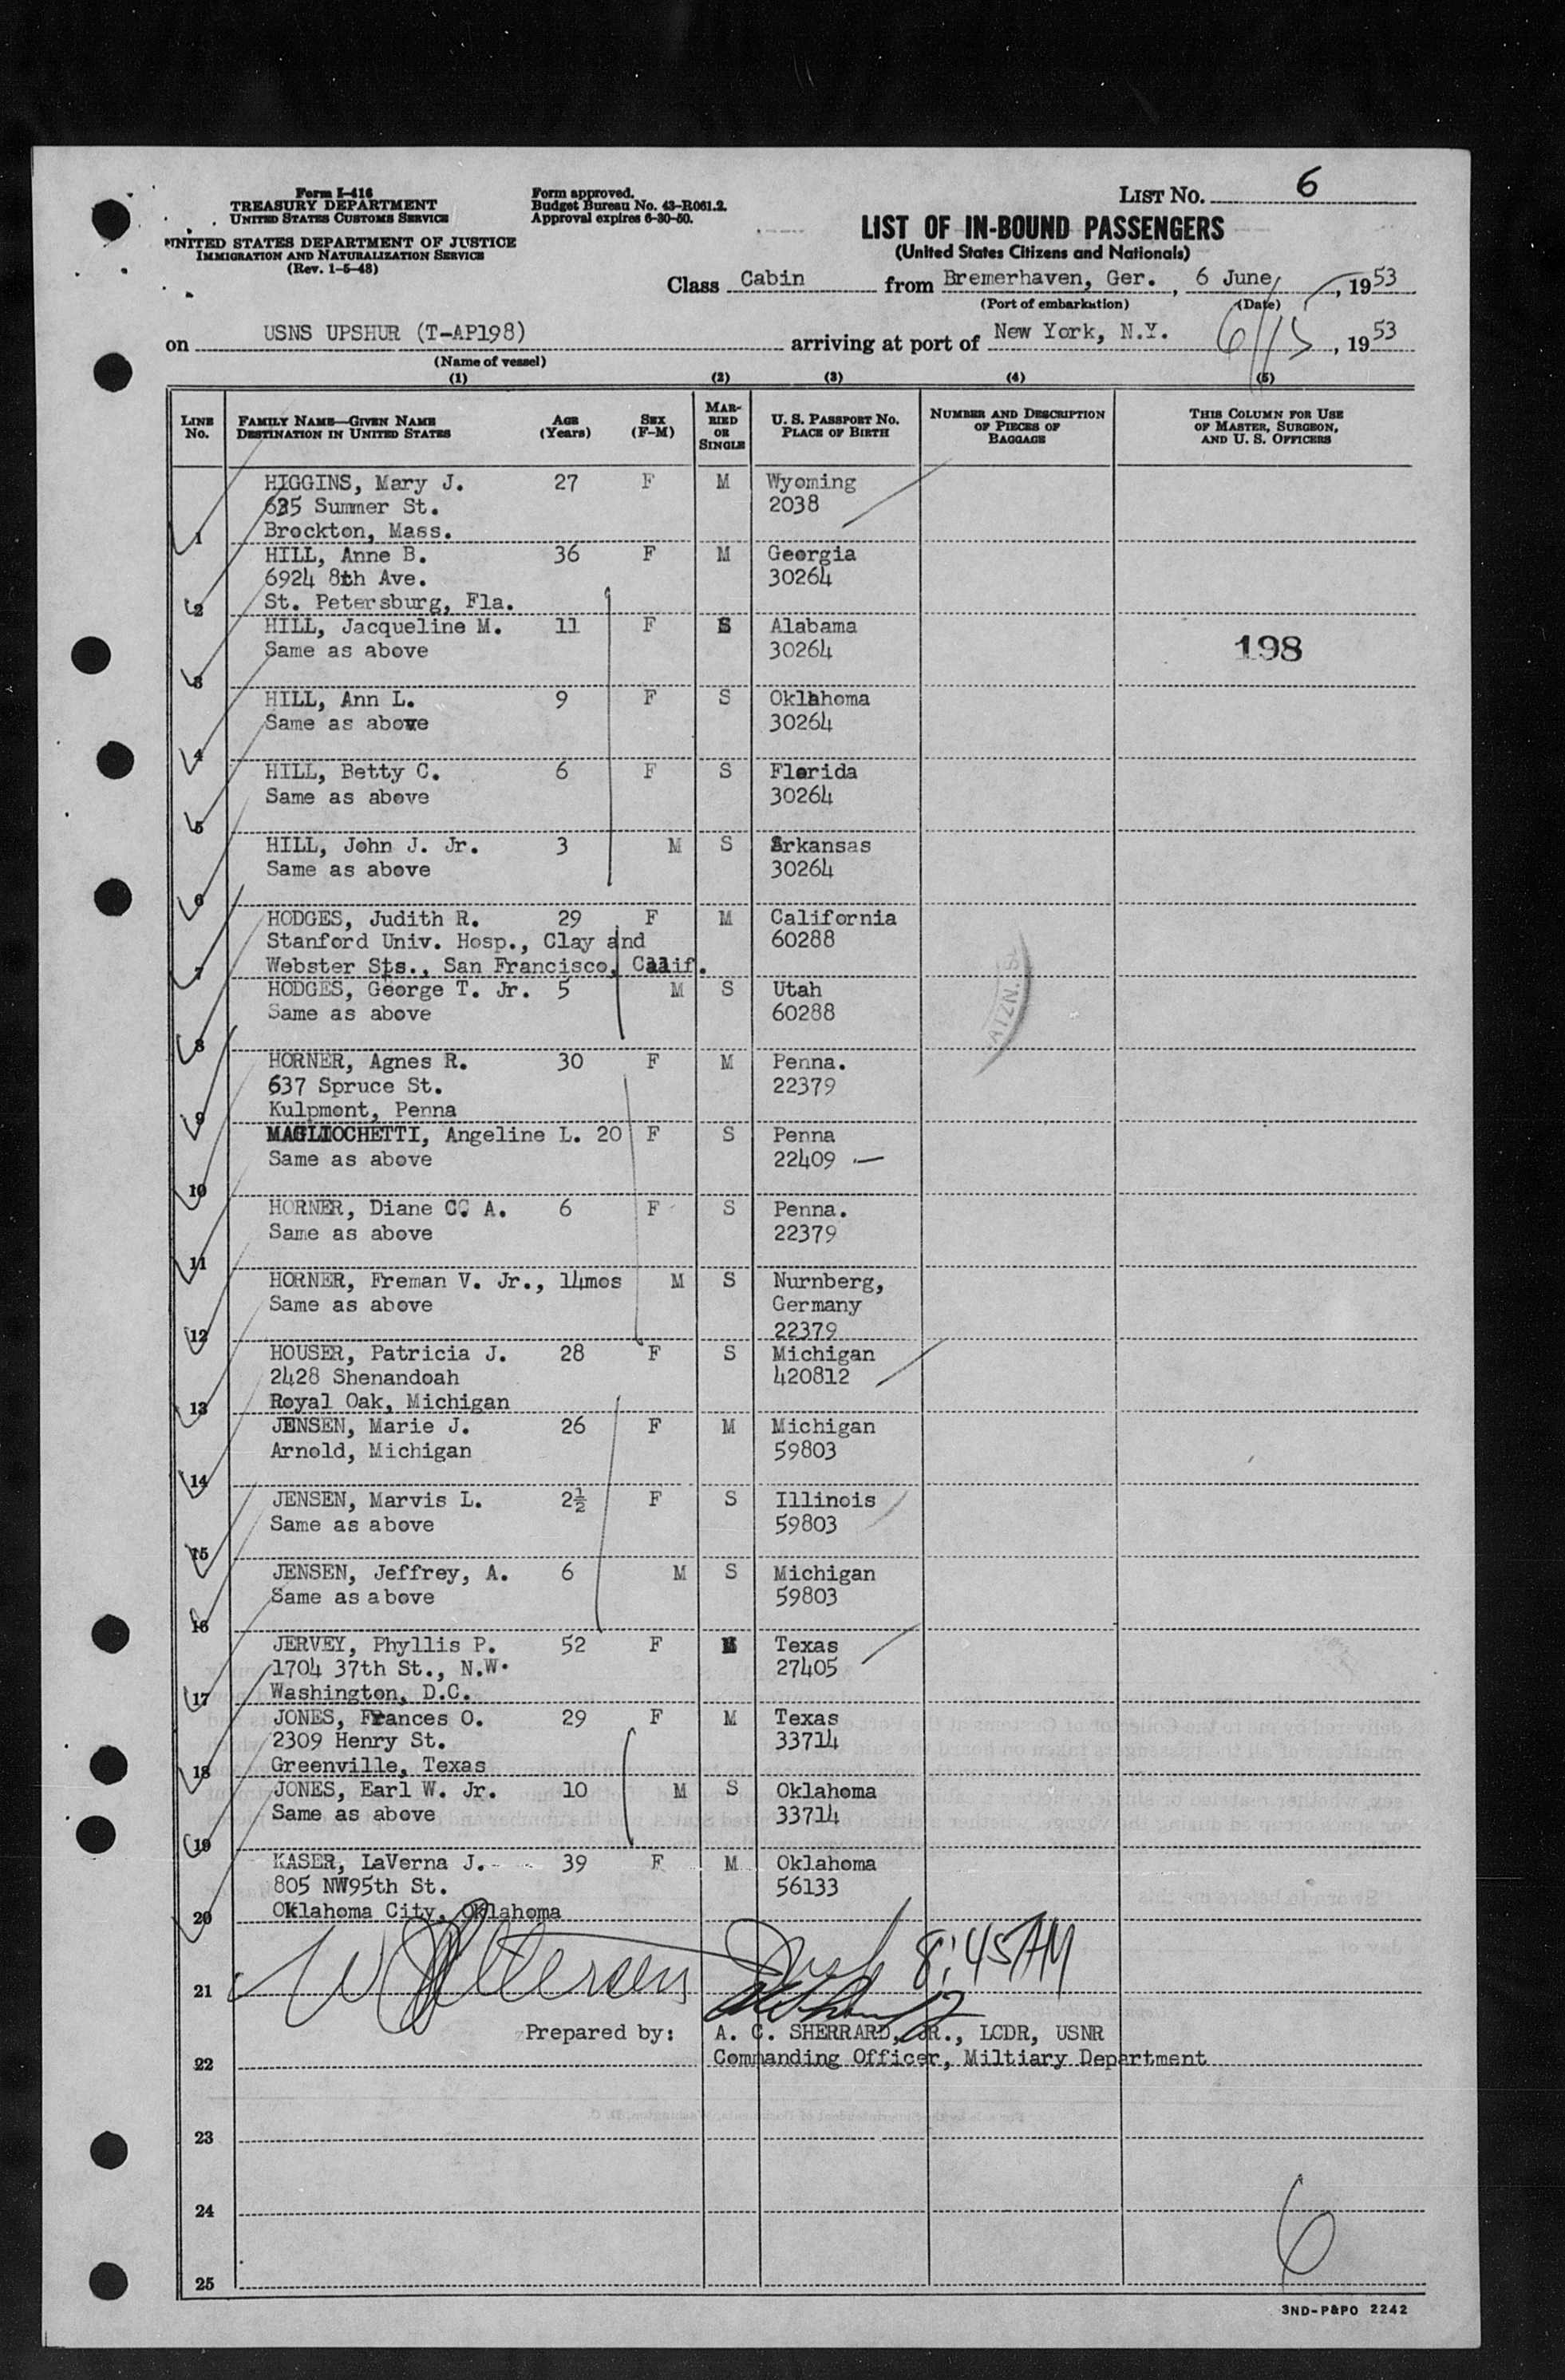 Form I-416
TREASURY DEPARTMENT
UNITED STATES CUSTOMS SERVICE
UNITED STATES DEPARTMENT OF JUSTICE
IMMIGRATION AND NATURALIZATION SERVICE
(Rev. 1-5-48)
Form approved.
Budget Bureau No. 43-R061.2.
Approval expires 6-30-50.
LIST NO. 6
LIST OF IN-BOUND PASSENGERS
(United States Citizens and Nationals)
Class Cabin from Bremerhaven, Ger., 6 June, 1953
(Port of embarkation) (Date)
on USNS UPSHUR (T-AP198) arriving at port of New York, N.Y. 6/15, 1953
(Name of vessel)
(1) (2) (3) (4) (5)
LINE No. FAMILY NAME—GIVEN NAME DESTINATION IN UNITED STATES AGE (Years) SEX (F-M) MARRIED OR SINGLE U. S. PASSPORT NO. PLACE OF BIRTH NUMBER AND DESCRIPTION OF PIECES OF BAGGAGE THIS COLUMN FOR USE OF MASTER, SURGEON, AND U. S. OFFICERS
HIGGINS, Mary J. 27 F M Wyoming
635 Summer St. 2038
1 Brockton, Mass.
HILL, Anne B. 36 F M Georgia
6924 8th Ave. 30264
2 St. Petersburg, Fla.
HILL, Jacqueline M. 11 F S Alabama
Same as above 30264 198
3
HILL, Ann L. 9 F S Oklahoma
Same as above 30264
4
HILL, Betty C. 6 F S Florida
Same as above 30264
5
HILL, John J. Jr. 3 M S Arkansas
Same as above 30264
6
HODGES, Judith R. 29 F M California
Stanford Univ. Hosp., Clay and 60288
7 Webster Sts., San Francisco, Calif.
HODGES, George T. Jr. 5 M S Utah
Same as above 60288
8
HORNER, Agnes R. 30 F M Penna.
637 Spruce St. 22379
9 Kulpmont, Penna
MAGLIOCHETTI, Angeline L. 20 F S Penna
Same as above 22409
10
HORNER, Diane C. A. 6 F S Penna.
Same as above 22379
11
HORNER, Freman V. Jr., 14mos M S Nurnberg,
Same as above Germany
12 22379
HOUSER, Patricia J. 28 F S Michigan
2428 Shenandoah 420812
13 Royal Oak, Michigan
JENSEN, Marie J. 26 F M Michigan
Arnold, Michigan 59803
14
JENSEN, Marvis L. 2½ F S Illinois
Same as above 59803
15
JENSEN, Jeffrey, A. 6 M S Michigan
Same as above 59803
16
JERVEY, Phyllis P. 52 F M Texas
1704 37th St., N.W. 27405
17 Washington, D.C.
JONES, Frances O. 29 F M Texas
2309 Henry St. 33714
18 Greenville, Texas
JONES, Earl W. Jr. 10 M S Oklahoma
Same as above 33714
19
KASER, LaVerna J. 39 F M Oklahoma
805 NW95th St. 56133
20 Oklahoma City, Oklahoma
8:45AM
21
Prepared by: A. C. SHERRARD, JR., LCDR, USNR
22 Commanding Officer, Miltiary Department
23
24
6
25
3ND-P&PO 2242